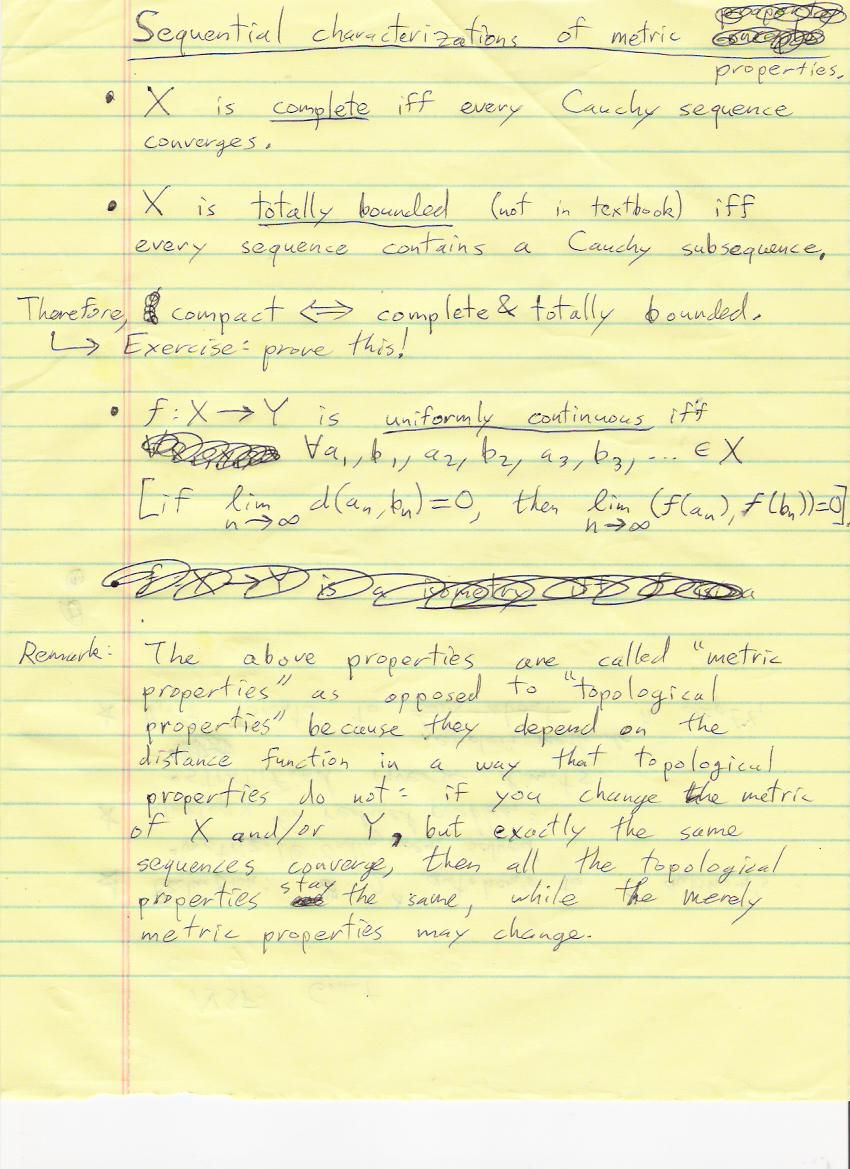 Sequential characterizations of metric
properties.
• X is complete iff every Cauchy sequence
converges.
• X is totally bounded (not in textbook) iff
every sequence contains a Cauchy subsequence.
Therefore, compact ⟺ complete & totally bounded.
↳ Exercise: prove this!
• f: X → Y is uniformly continuous iff
∀a₁, b₁, a₂, b₂, a₃, b₃, ... ∈ X
[if lim n→∞ d(aₙ, bₙ) = 0, then lim n→∞ (f(aₙ), f(bₙ)) = 0].
• f: X → Y is a isometry a
Remark: The above properties are called "metric
properties" as opposed to "topological
properties" because they depend on the
distance function in a way that topological
properties do not: if you change the metric
of X and/or Y, but exactly the same
sequences converge, then all the topological
properties stay the same, while the merely
metric properties may change.